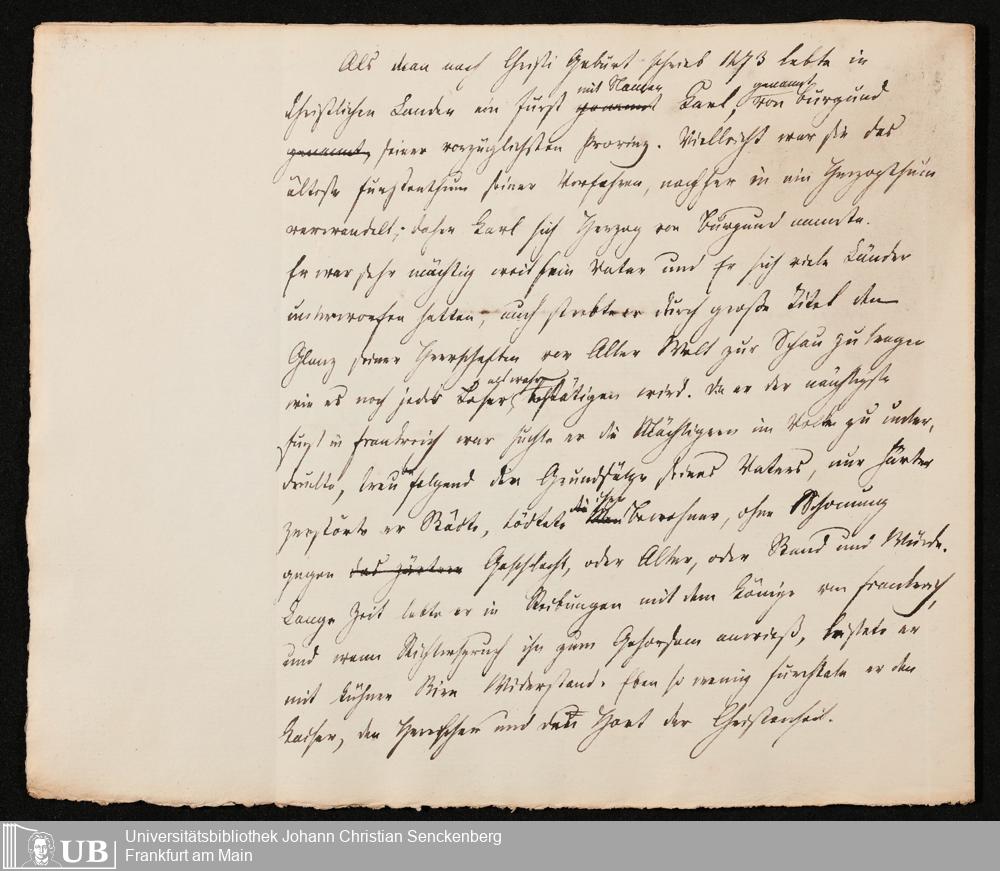 Als man nach Christi Geburt schrieb 1473 lebte in
Christlichen Landen ein Fürst genannt mit Namen Karl, genannt von Burgund
genannt, seiner vorzüglichsten Provinz. Vielleicht war sie das
älteste Fürstenthum seiner Vorfahren, nachher in ein Herzogthum
verwandelt; daher Karl sich Herzog von Burgund nannte.
Er war sehr mächtig weil sein Vater und Er sich viele Länder
unterworfen hatten, auch strebte er durch große Titel den
Glanz seiner Herrschaften vor Aller Welt zur Schau zu tragen
wie es noch jedes bestätigen wird. Da er der mächtigste
Fürst in Frankreich war suchte er die Mächtigern im Volke zu unter,
drücken, treu folgend den Grundsätzen seines Vaters, nur härter
zerstörte er Städte, tödtete die Bewohner, ohne Schonung
gegen das zärtere Geschlecht, oder Alter, oder Stand und Würde.
Lange Zeit lebte er in Reibungen mit dem Könige von Frankreich,
und wenn Richterspruch ihn zum Gehorsam anwieß, leistete er
mit kühner Stirn Widerstand. Eben so wenig fürchtete er den
Kaiser, den Herrscher und den Hort der Christenheit.
UB
Universitätsbibliothek Johann Christian Senckenberg
Frankfurt am Main